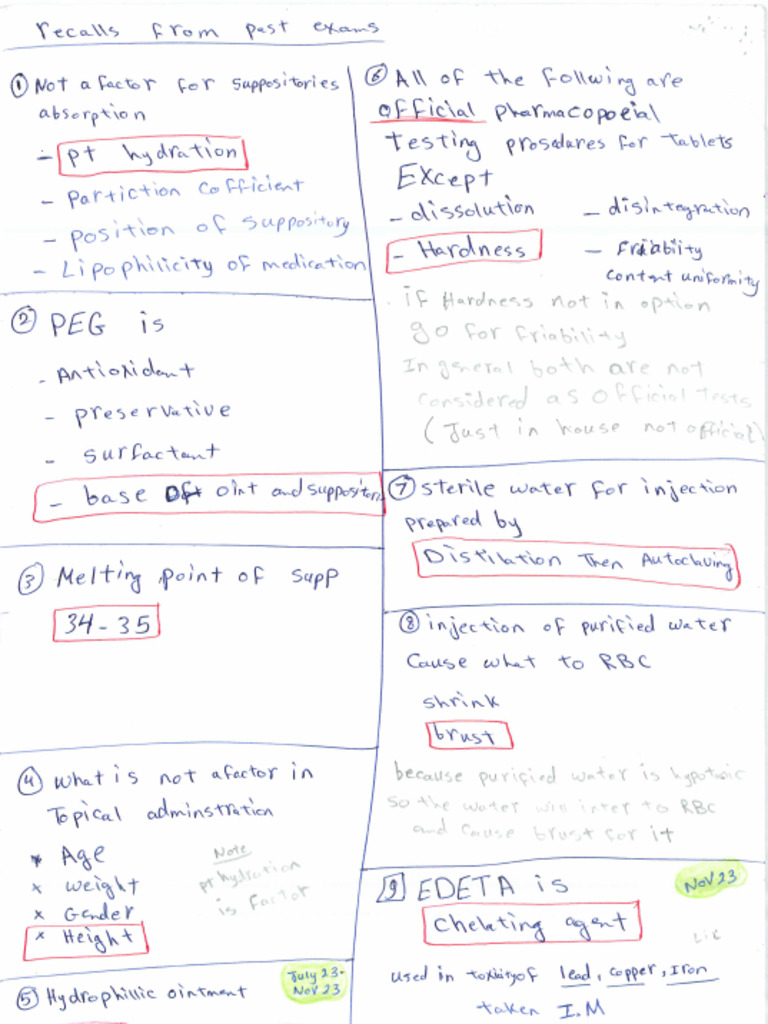 recalls from past exams
① Not a factor for suppositories
absorption
- pt hydration
- partiction cofficient
- position of suppository
- Lipophilicity of medication
② PEG is
- Antioxidant
- preservative
- surfactant
- base oft oint and suppositori
③ Melting point of supp
34-35
④ what is not a factor in
Topical adminstration
* Age
x weight
x Gender
* Height
Note
pt hydration
is factor
July 23-
Nov 23
⑤ Hydrophillic ointment
⑥ All of the follwing are
official pharmacopoeial
testing prosedares for tablets
Except
- dissolution - disintegration
- Hardness - friability
content uniformity
if Hardness not in option
go for friability
In general both are not
considered as official tests
(Just in house not official)
⑦ sterile water for injection
prepared by
Distilation Then Autoclaving
⑧ injection of purified water
cause what to RBC
shrink
brust
because purified water is hypotonic
so the water will inter to RBC
and cause brust for it
9 EDETA is
Nov 23
chelating agent
used in toxicity of lead, copper, Iron
taken I.M